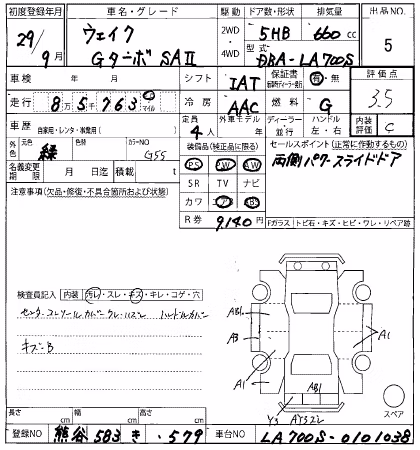 初度登録年月 車名・グレード 駆動 ドア数・形状 排気量 出品NO
29/9月 ウェイク Gターボ SAⅡ 2WD・4WD 5HB 660cc 5
型式 DBA-LA700S
車検 年 月 シフト IAT 保証書 有・無 評価点
走行 8万5千763 km マイル 冷房 AAC 燃料 G 3.5
車歴 自家用・レンタ・事業用( ) 定員 4人 外車モデル ディーラー 並行 ハンドル 左・右 内装評価 C
外色 元色 緑 色替 カラーNO G55 装備品(純正品に限る) セールスポイント(正常に作動するもの)
名義変更期限 月 日迄 積載 t PS PW AW 両側パワースライドドア
注意事項(欠品・修復・不具合箇所および状態) SR TV ナビ
カワ エアB ABS
R券 9,140円 Fガラス トビ石・キズ・ヒビ・ワレ・リペア跡
検査員記入 内装 汚レ・スレ・キズ・キレ・コゲ・穴
キズ・B
AB1
AB
A1
A1
AB1
Y3
スペア
長さ cm 幅 cm 高さ cm
登録NO 熊谷 583 き ・579 車台NO LA700S-0101038